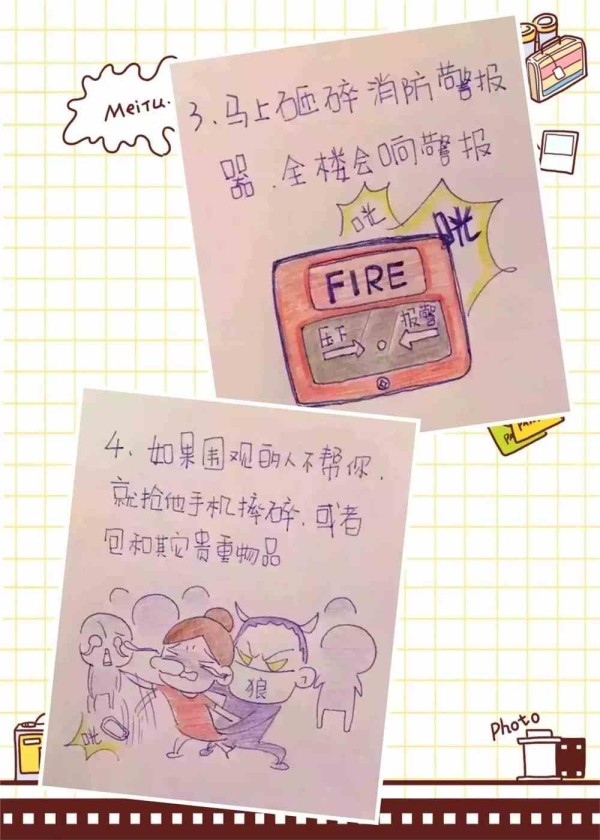 MEITU.
3、马上砸碎消防警报
器、全楼会响警报
咣
咣
FIRE
压下
报警
4、如果围观的人不帮你、
就抢他手机摔碎、或者
包和其它贵重物品
狼
咣
Photo